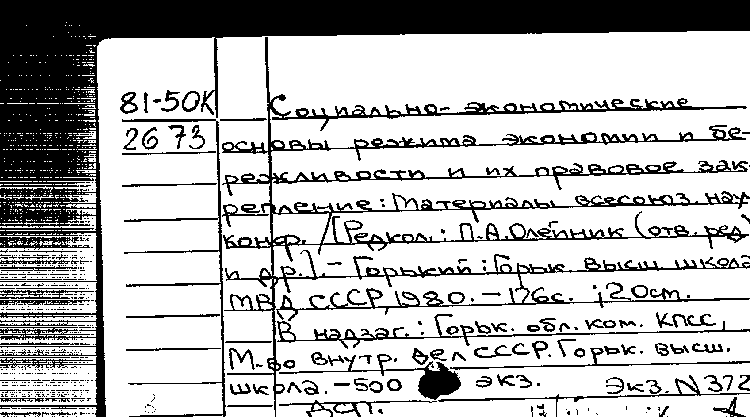 81-50К
2673
Социально-экономические
основы режима экономии и бе-
режливости и их правовое зак-
репление: Материалы всесоюз. нау
конф. /[Редкол.: П.А.Олейник (отв. ред)
и др.].- Горький: Горьк. высш школа
МВД СССР, 1980. - 176с. ; 20см.
В надзаг.: Горьк. обл. ком. КПСС,
М-во внутр. дел СССР. Горьк. высш.
школа. - 500 экз. Экз. N 372
Дсп.